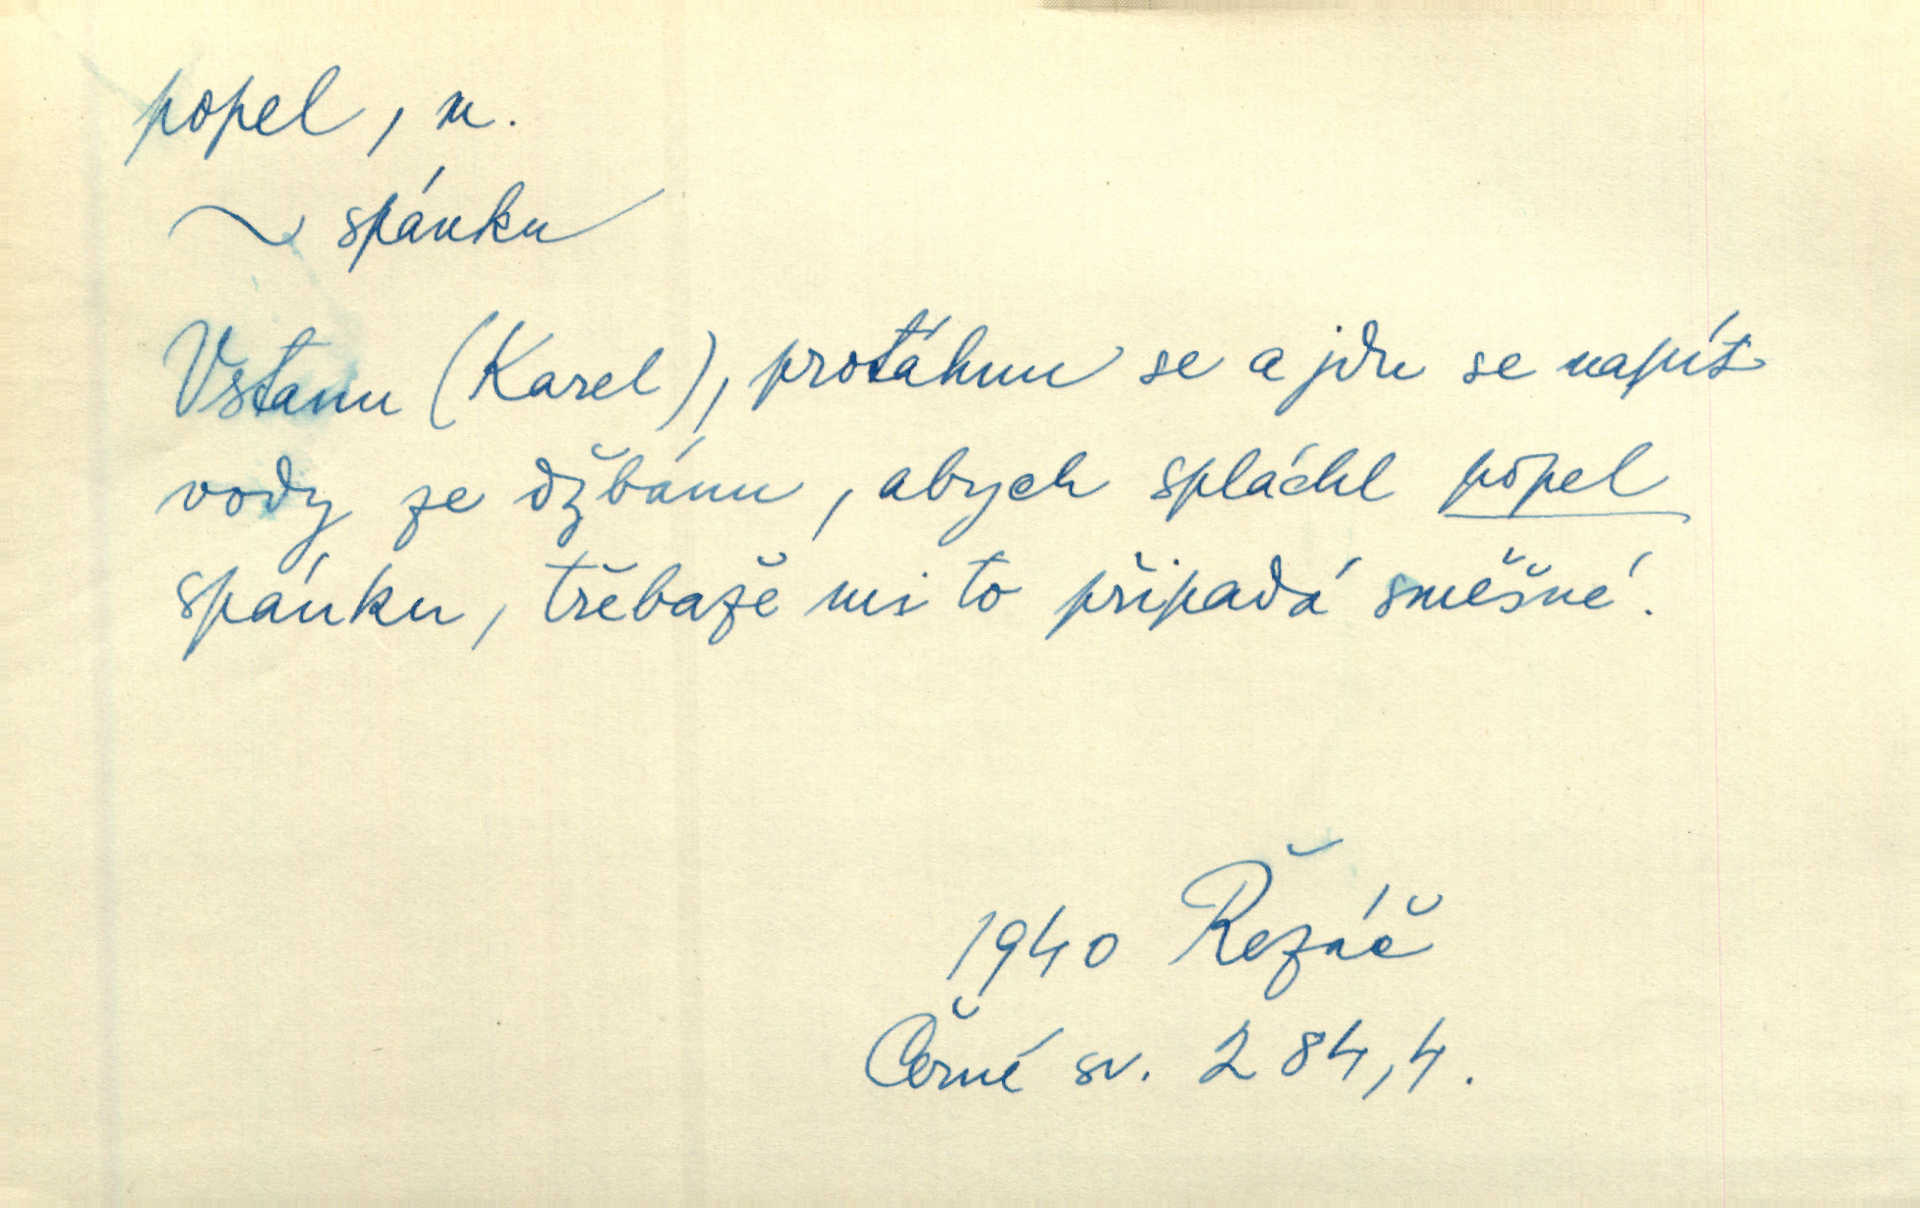 popel, m.
~ spánku
Vstanu (Karel), protáhnu se a jdu se napít
vody ze džbánu, abych spláchl popel
spánku, třebaže mi to připadá směšné.
1940 Řezáč
Černé sv. 284,4.